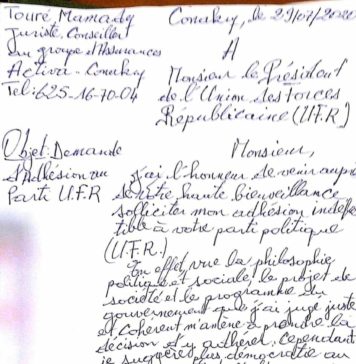 Touré Mamady
Juriste, Conseiller
du groupe d'Assurances
Activa - Conakry
Tel: 625-16-70-04
Conakry, le 29/07/20
A
Monsieur le Président
de l'Union des Forces
Républicaine (U.F.R)
Objet: Demande
d'Adhésion au
Parti U.F.R
Monsieur,
j'ai l'honneur de venir auprès
de votre haute bienveillance
solliciter mon adhésion
à votre parti politique
(U.F.R.)
En effet, vue la philosophie
politique et sociale, le projet de
société et le programme du
gouvernement que j'ai jugé juste
et Cohérent m'amène à prendre la
décision d'y adhérer, cependant
je suggère plus démocratie au